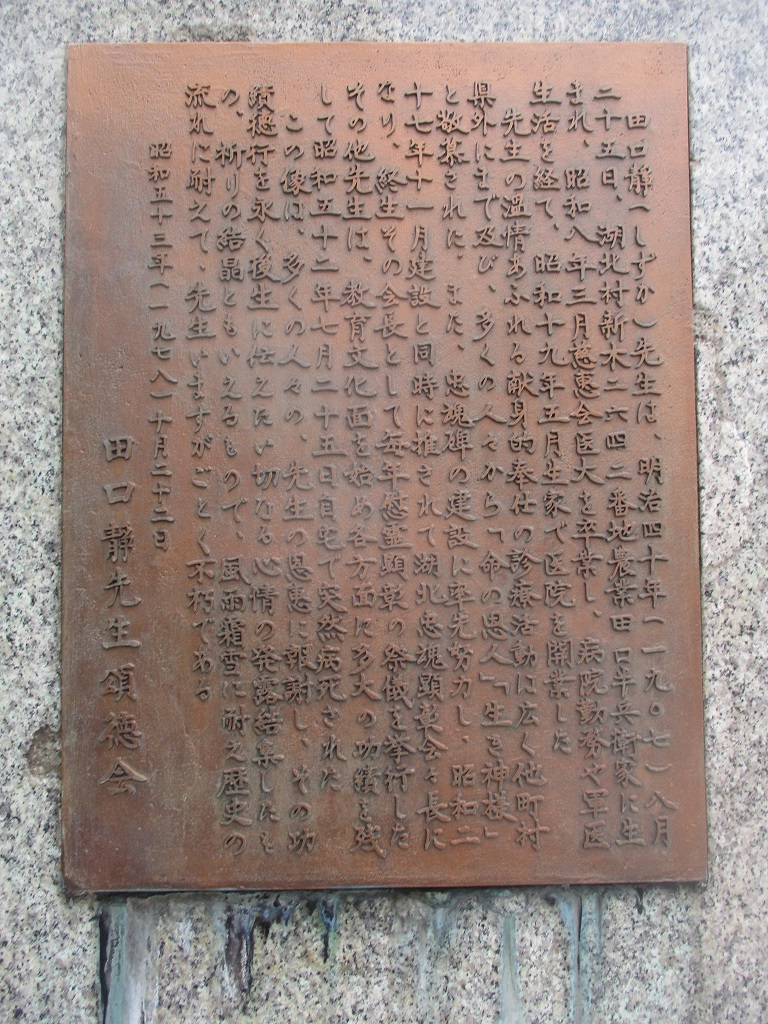 田口静(しずか)先生は、明治四十年(一九〇七)八月
二十五日、湖北村新木二六四二番地農業田口半兵衛家に生
まれ、昭和八年三月慈恵会医大を卒業し、病院勤務や軍医
生活を経て、昭和十九年五月生家で医院を開業した
先生の温情あふれる献身的奉仕の診療活動は広く他町村
県外にまで及び、多くの人々から「命の恩人」「生き神様」
と敬慕された、また、忠魂碑の建設に率先努力し、昭和二
十七年十一月建設と同時に推されて湖北忠魂顕彰会々長に
なり、終生その会長として毎年慰霊顕彰の祭儀を挙行した
その他先生は、教育文化面を始め各方面に多大の功績を残
して昭和五十二年七月二十五日自宅で突然病死された
この像は、多くの人々の、先生の恩恵に報謝し、その功
績徳行を永く後生に伝えたい切なる心情の発露結集したも
の、祈りの結晶ともいえるもので、風雨霜雪に耐え歴史の
流れに耐えて、先生いますがごとく不朽である
昭和五十三年(一九七八)十月二十二日
田口静先生頌徳会